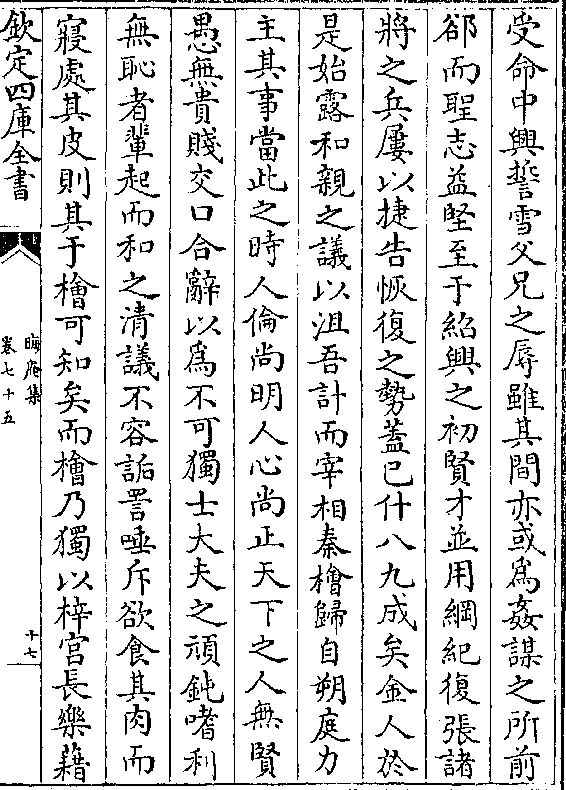 受命中興誓雪父兄之辱雖其間亦或爲姦謀之所前
郤而聖志益堅至于紹興之初賢才並用綱紀復張諸
將之兵屢以捷告恢復之勢蓋已什八九成矣金人於
是始露和親之議以沮吾計而宰相秦檜歸自朔庭力
主其事當此之時人倫尚明人心尚正天下之人無賢
愚無貴賤交口合辭以爲不可獨士大夫之頑鈍嗜利
無恥者輩起而和之清議不容詬詈唾斥欲食其肉而
寢處其皮則其于檜可知矣而檜乃獨以梓宫長樂藉
欽定四庫全書
晦庵集
卷七十五
十七